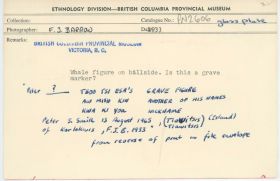 ETHNOLOGY DIVISION—BRITISH COLUMBIA PROVINCIAL MUSEUM
Catalogue No. PN2606 glass plate
Photographer: F. J. BARROW Date: 1933
Remarks:
BRITISH COLUMBIA PROVINCIAL MUSEUM
VICTORIA, B. C.
Whale figure on hillside. Is this a grave
marker?
? TSOO TSI ESA'S GRAVE FIGURE
AU MUKI KIN ANOTHER OF HIS NAMES
KWA KI YOU NICKNAME
Peter S. Smith 15 August 1965 (Tlawitsis) (Island)
of Karlukwis, F.J.B. 1933 (Tlawitsis)
from reverse of print on file envelope